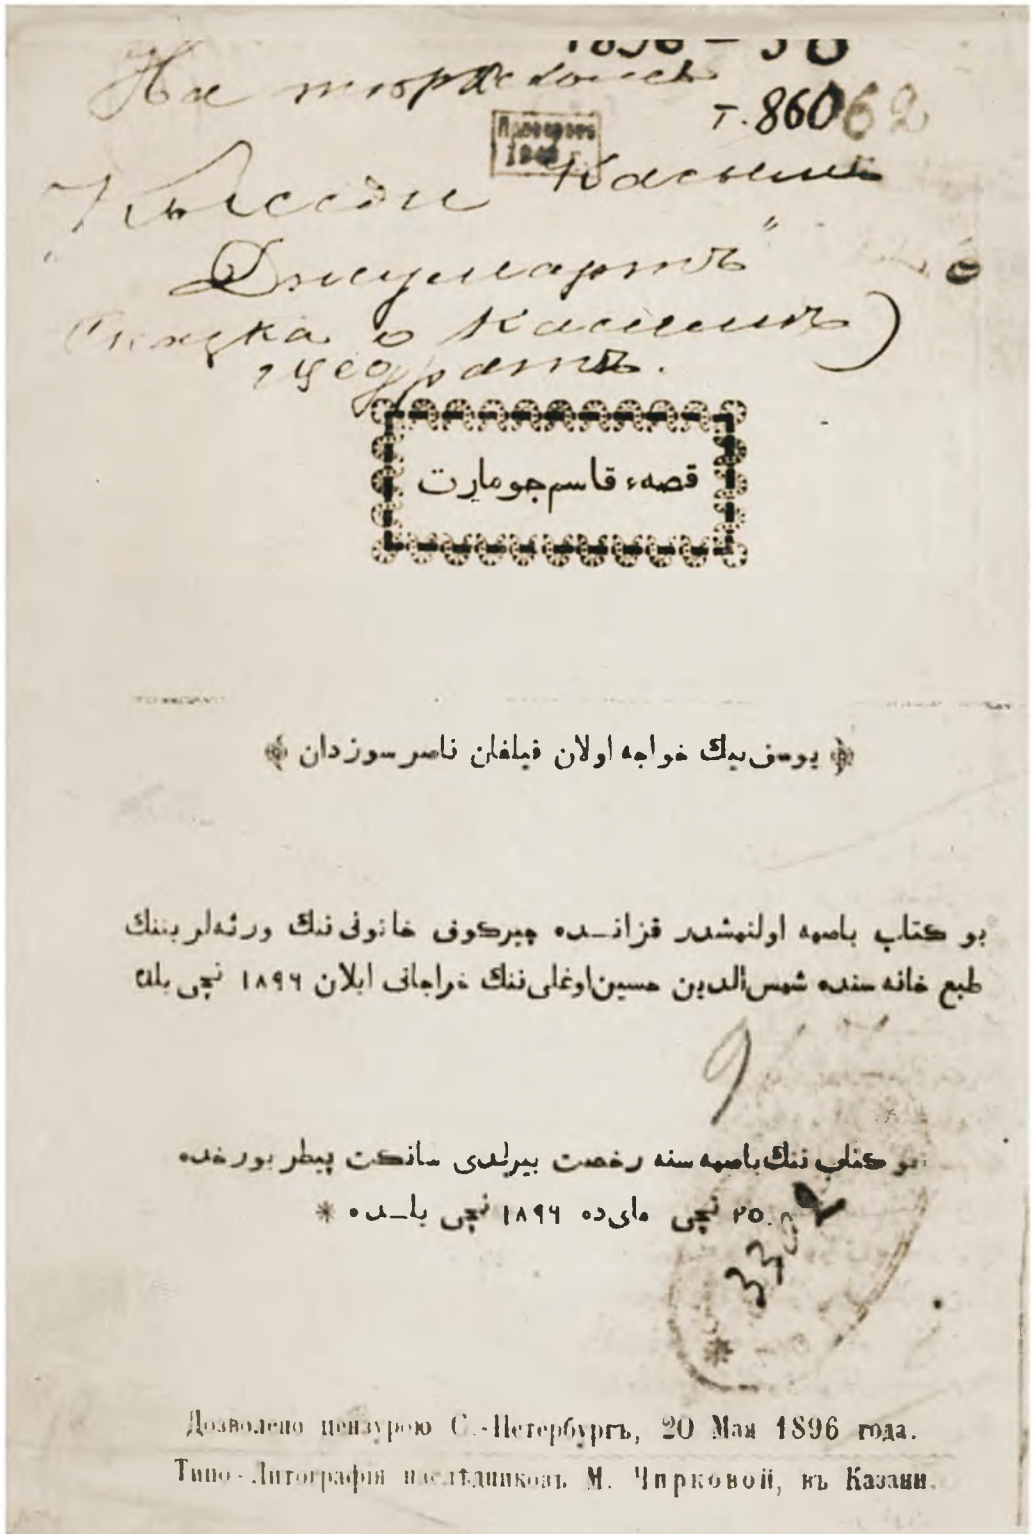 1896 - 30
На тюркскомъ
т. 86062
Провѣренъ
Кыссаи Касымъ
Джумартъ"
Сказка о Касимѣ)
щедратъ.
قصهء قاسم جومارت
يوسف بيك خواجه اولان قيلغان ناصر سوزدان
بو كتاب باصمه اولنمشدر قزانـده چيركوف خاتونى ننك ورثه لريننك
طبع خانه سنده شمس الدين حسين اوغلى ننك خراجاتى ايلان ١٨٩٦ نچى يلده
بو كتاب ننك باصمه سنه رخصت بيرلدى سانكت پيطربورخده
٢٠ نچى ماى ده ١٨٩٦ نچى يلـده *
Дозволено цензурою С.-Петербургъ, 20 Мая 1896 года.
Типо-Литографія наслѣдниковъ М. Чирковой, въ Казани.